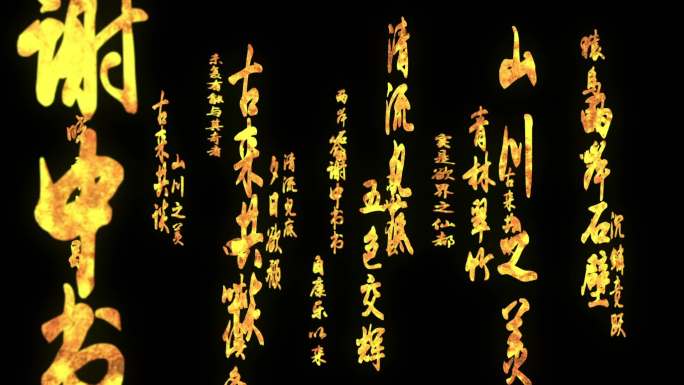 猿鸟
两岸石壁
沉鳞竞跃
山川之美
古来共
青林翠竹
实是欲界之仙都
清流见底
五色交辉
两岸
答谢中书书
自康乐以来
清流见底
夕日欲颓
古来共
未复有能与其奇者
山川之美
古来共谈
谢中书